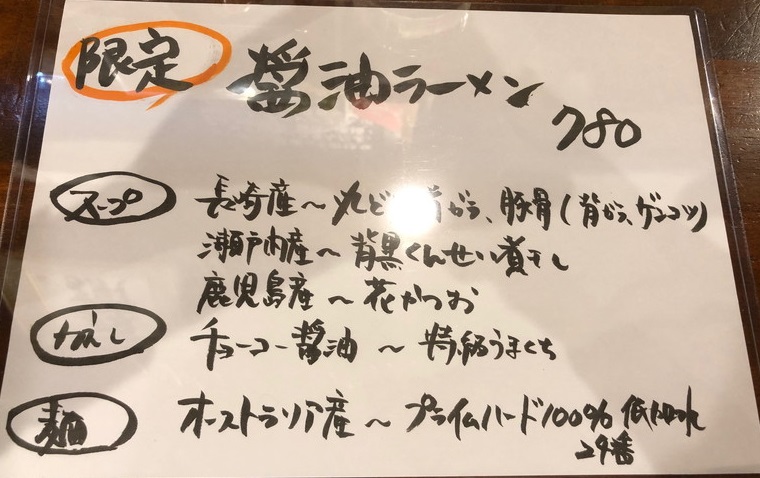 限定 醤油ラーメン
780
スープ 長崎産～丸ど 背がら、豚骨(背がら、ゲンコツ)
瀬戸内産～背黒くんせい煮干し
鹿児島産～花かつお
かえし チョーコー醤油～特級うまくち
麺 オーストラリア産～プライムハード100% 低加水
24番